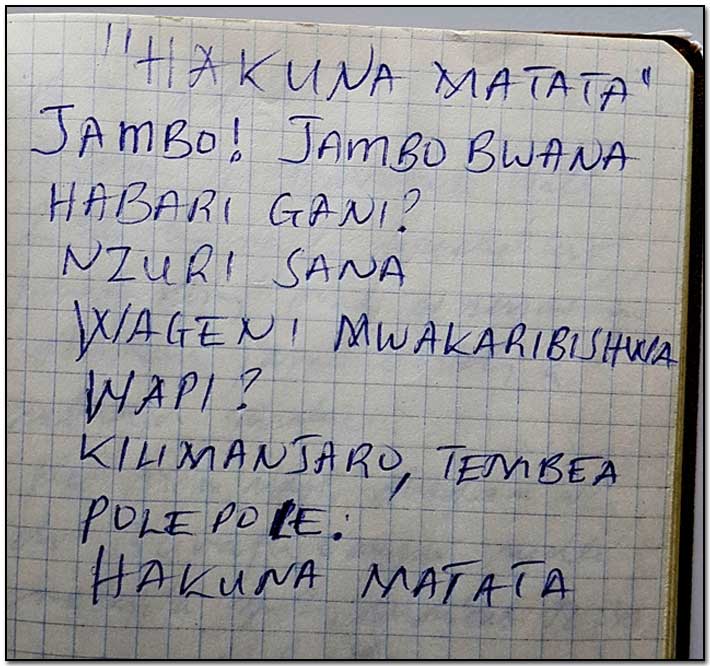 "HAKUNA MATATA"
JAMBO! JAMBO BWANA
HABARI GANI?
NZURI SANA
WAGENI MWAKARIBISHWA
WAPI?
KILIMANJARO, TEMBEA
POLE POLE.
HAKUNA MATATA